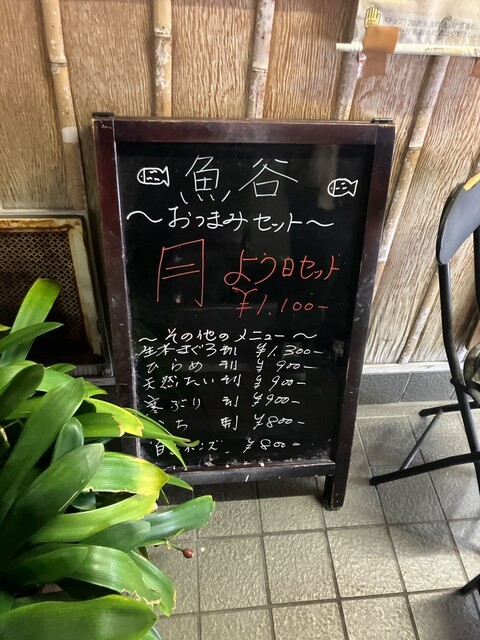 ストップ!20歳未満飲酒
魚谷
～おつまみセット～
月 よう日セット
¥1,100-
～その他のメニュー～
生本まぐろ刺 ¥1,300-
ひらめ 刺 ¥900-
天然たい刺 ¥900-
寒ぶり 刺 ¥900-
ち 刺 ¥800-
白 ポンズ ¥800-